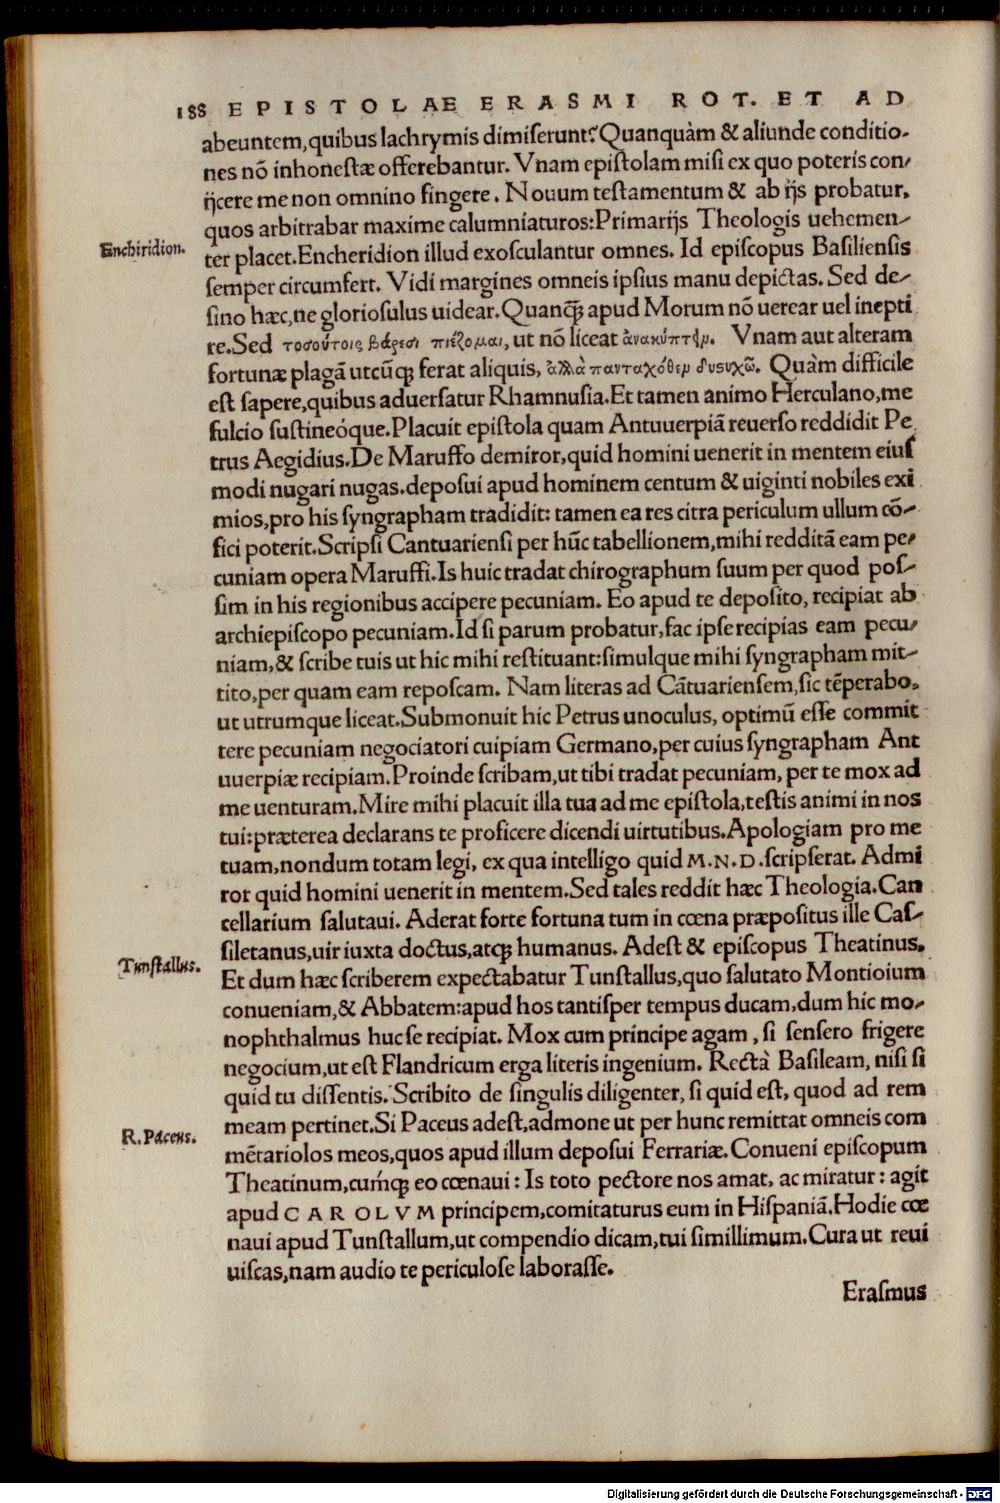 188 EPISTOLAE ERASMI ROT. ET AD
abeuntem, quibus lachrymis dimiserunt? Quanquàm & aliunde conditio-
nes nõ inhonestæ offerebantur. Vnam epistolam misi ex quo poteris con-
ijcere me non omnino fingere. Nouum testamentum & ab ijs probatur,
quos arbitrabar maxime calumniaturos: Primarijs Theologis uehemen-
Enchiridion.
ter placet. Encheridion illud exosculantur omnes. Id episcopus Basiliensis
semper circumfert. Vidi margines omneis ipsius manu depictas. Sed de-
sino hæc, ne gloriosulus uidear. Quanq̃ apud Morum nõ uerear uel inepti
re. Sed τοσούτοις βάρεσι πιέζομαι, ut nõ liceat ἀνακύπτειν. Vnam aut alteram
fortunæ plagã utcũq; ferat aliquis, ἀλλὰ πανταχόθεν δυσυχῶ. Quàm difficile
est sapere, quibus aduersatur Rhamnusia. Et tamen animo Herculano, me
fulcio sustineóque. Placuit epistola quam Antuuerpiã reuerso reddidit Pe
trus Aegidius. De Maruffo demiror, quid homini uenerit in mentem eius
modi nugari nugas. deposui apud hominem centum & uiginti nobiles exi
mios, pro his syngrapham tradidit: tamen ea res citra periculum ullum cõ-
fici poterit. Scripsi Cantuariensi per hũc tabellionem, mihi redditã eam pe-
cuniam opera Maruffi. Is huic tradat chirographum suum per quod pos-
sim in his regionibus accipere pecuniam. Eo apud te deposito, recipiat ab
archiepiscopo pecuniam. Id si parum probatur, fac ipse recipias eam pecu-
niam, & scribe tuis ut hic mihi restituant: simulque mihi syngrapham mit-
tito, per quam eam reposcam. Nam literas ad Cãtuariensem, sic tẽperabo,
ut utrumque liceat. Submonuit hic Petrus unoculus, optimũ esse commit
tere pecuniam negociatori cuipiam Germano, per cuius syngrapham Ant
uuerpiæ recipiam. Proinde scribam, ut tibi tradat pecuniam, per te mox ad
me uenturam. Mire mihi placuit illa tua ad me epistola, testis animi in nos
tui: præterea declarans te proficere dicendi uirtutibus. Apologiam pro me
tuam, nondum totam legi, ex qua intelligo quid M. N. D. scripserat. Admi
ror quid homini uenerit in mentem. Sed tales reddit hæc Theologia. Can
cellarium salutaui. Aderat forte fortuna tum in cœna præpositus ille Cas-
siletanus, uir iuxta doctus, atq; humanus. Adest & episcopus Theatinus.
Tunstallus.
Et dum hæc scriberem expectabatur Tunstallus, quo salutato Montioium
conueniam, & Abbatem: apud hos tantisper tempus ducam, dum hic mo-
nophthalmus huc se recipiat. Mox cum principe agam, si sensero frigere
negocium, ut est Flandricum erga literis ingenium. Rectà Basileam, nisi si
quid tu dissentis. Scribito de singulis diligenter, si quid est, quod ad rem
R. Paceus.
meam pertinet. Si Paceus adest, admone ut per hunc remittat omneis com
mẽtariolos meos, quos apud illum deposui Ferrariæ. Conueni episcopum
Theatinum, cumq́; eo cœnaui: Is toto pectore nos amat, ac miratur: agit
apud CAROLVM principem, comitaturus eum in Hispaniã. Hodie cœ
naui apud Tunstallum, ut compendio dicam, tui simillimum. Cura ut reui
uiscas, nam audio te periculose laborasse.
Erasmus
Digitalisierung gefördert durch die Deutsche Forschungsgemeinschaft - DFG